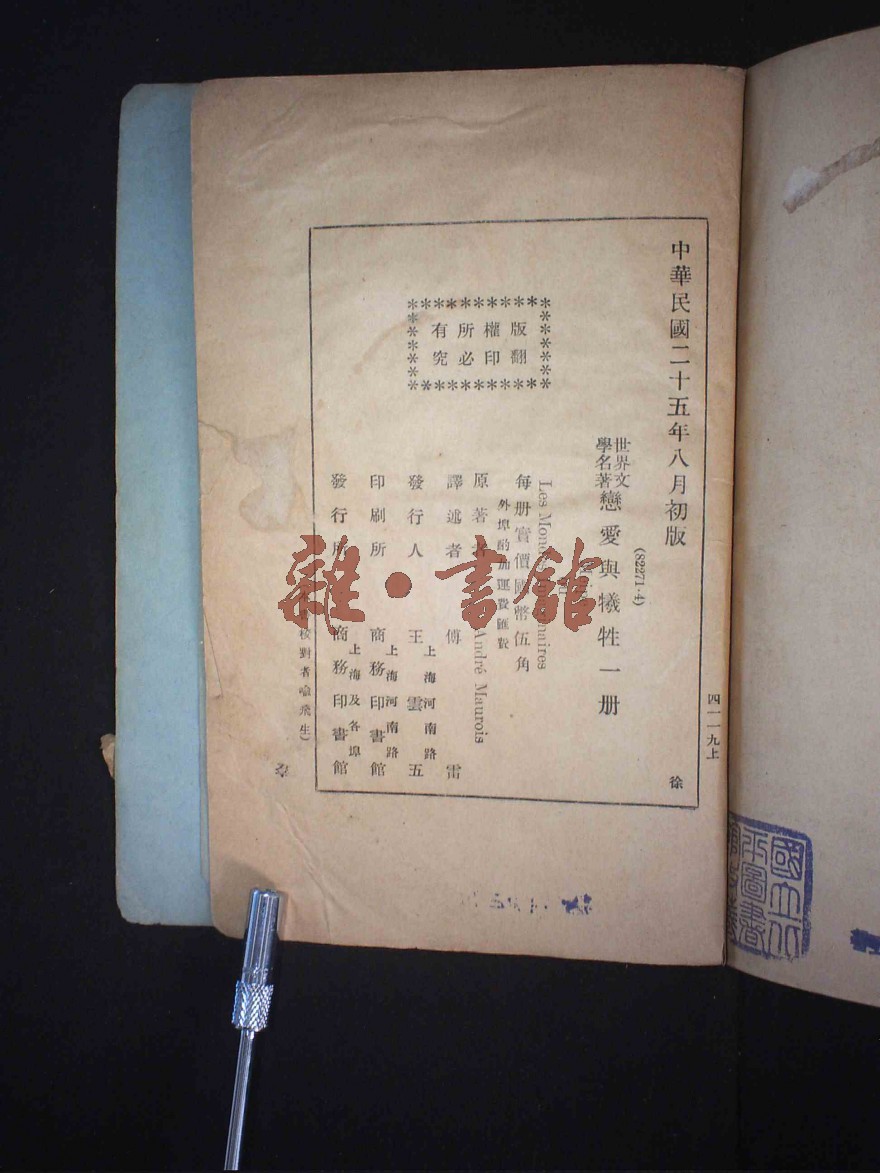 中華民國二十五年八月初版
四一一九上
徐
(82271·4)
世界文學名著 戀愛與犧牲 一册
Les Mondes
naires
每册實價國幣伍角
外埠酌加運費匯費
原著者 André Maurois
譯述者 傅雷
發行人 王雲五
上海河南路
印刷所 商務印書館
上海河南路
發行所 商務印書館
上海及各埠
版權所有
翻印必究
校對者喻飛生)
雜·書館
國立北
平圖書